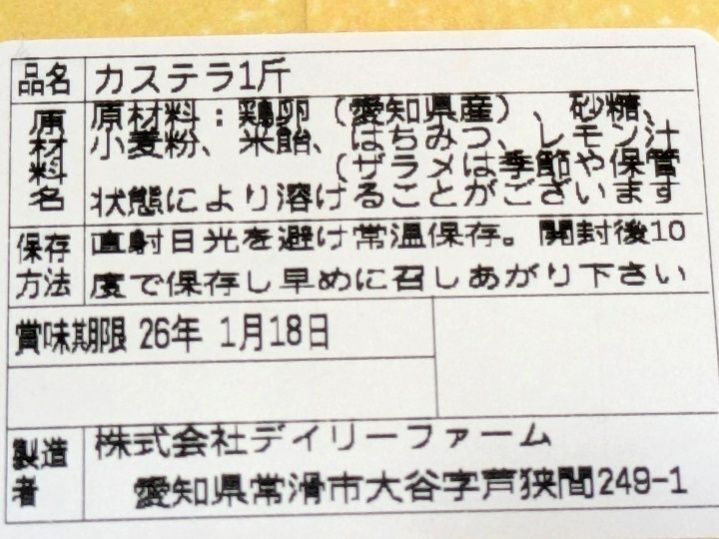 品名 カステラ1斤
原材料名 原材料：鶏卵（愛知県産）、砂糖、
小麦粉、米飴、はちみつ、レモン汁
（ザラメは季節や保管
状態により溶けることがございます
保存方法 直射日光を避け常温保存。開封後10
度で保存し早めに召しあがり下さい
賞味期限 26年 1月18日
製造者 株式会社デイリーファーム
愛知県常滑市大谷字芦狭間249-1